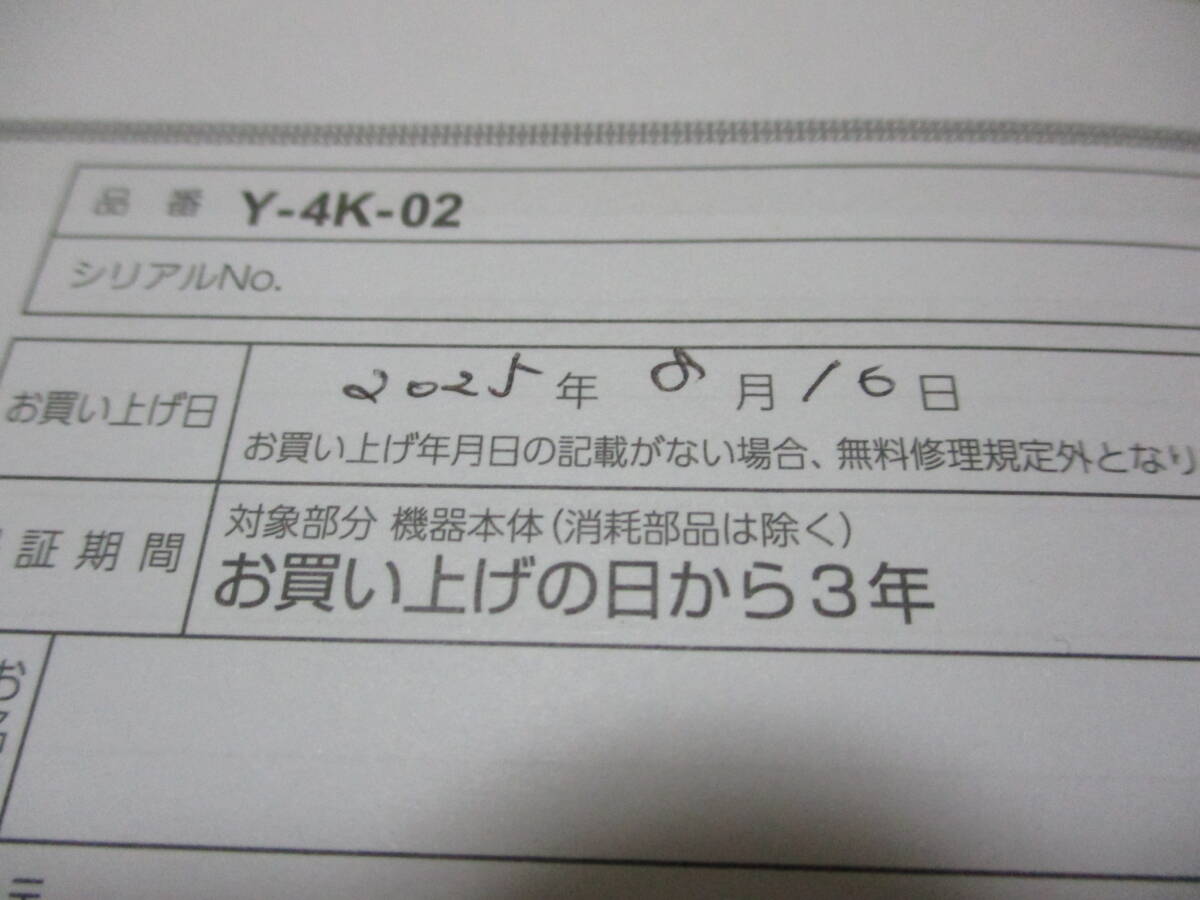 品 番 Y-4K-02
シリアルNo.
お買い上げ日 2025年 8月 16日
お買い上げ年月日の記載がない場合、無料修理規定外となり
証期間 対象部分 機器本体(消耗部品は除く)
お買い上げの日から3年
お
〒